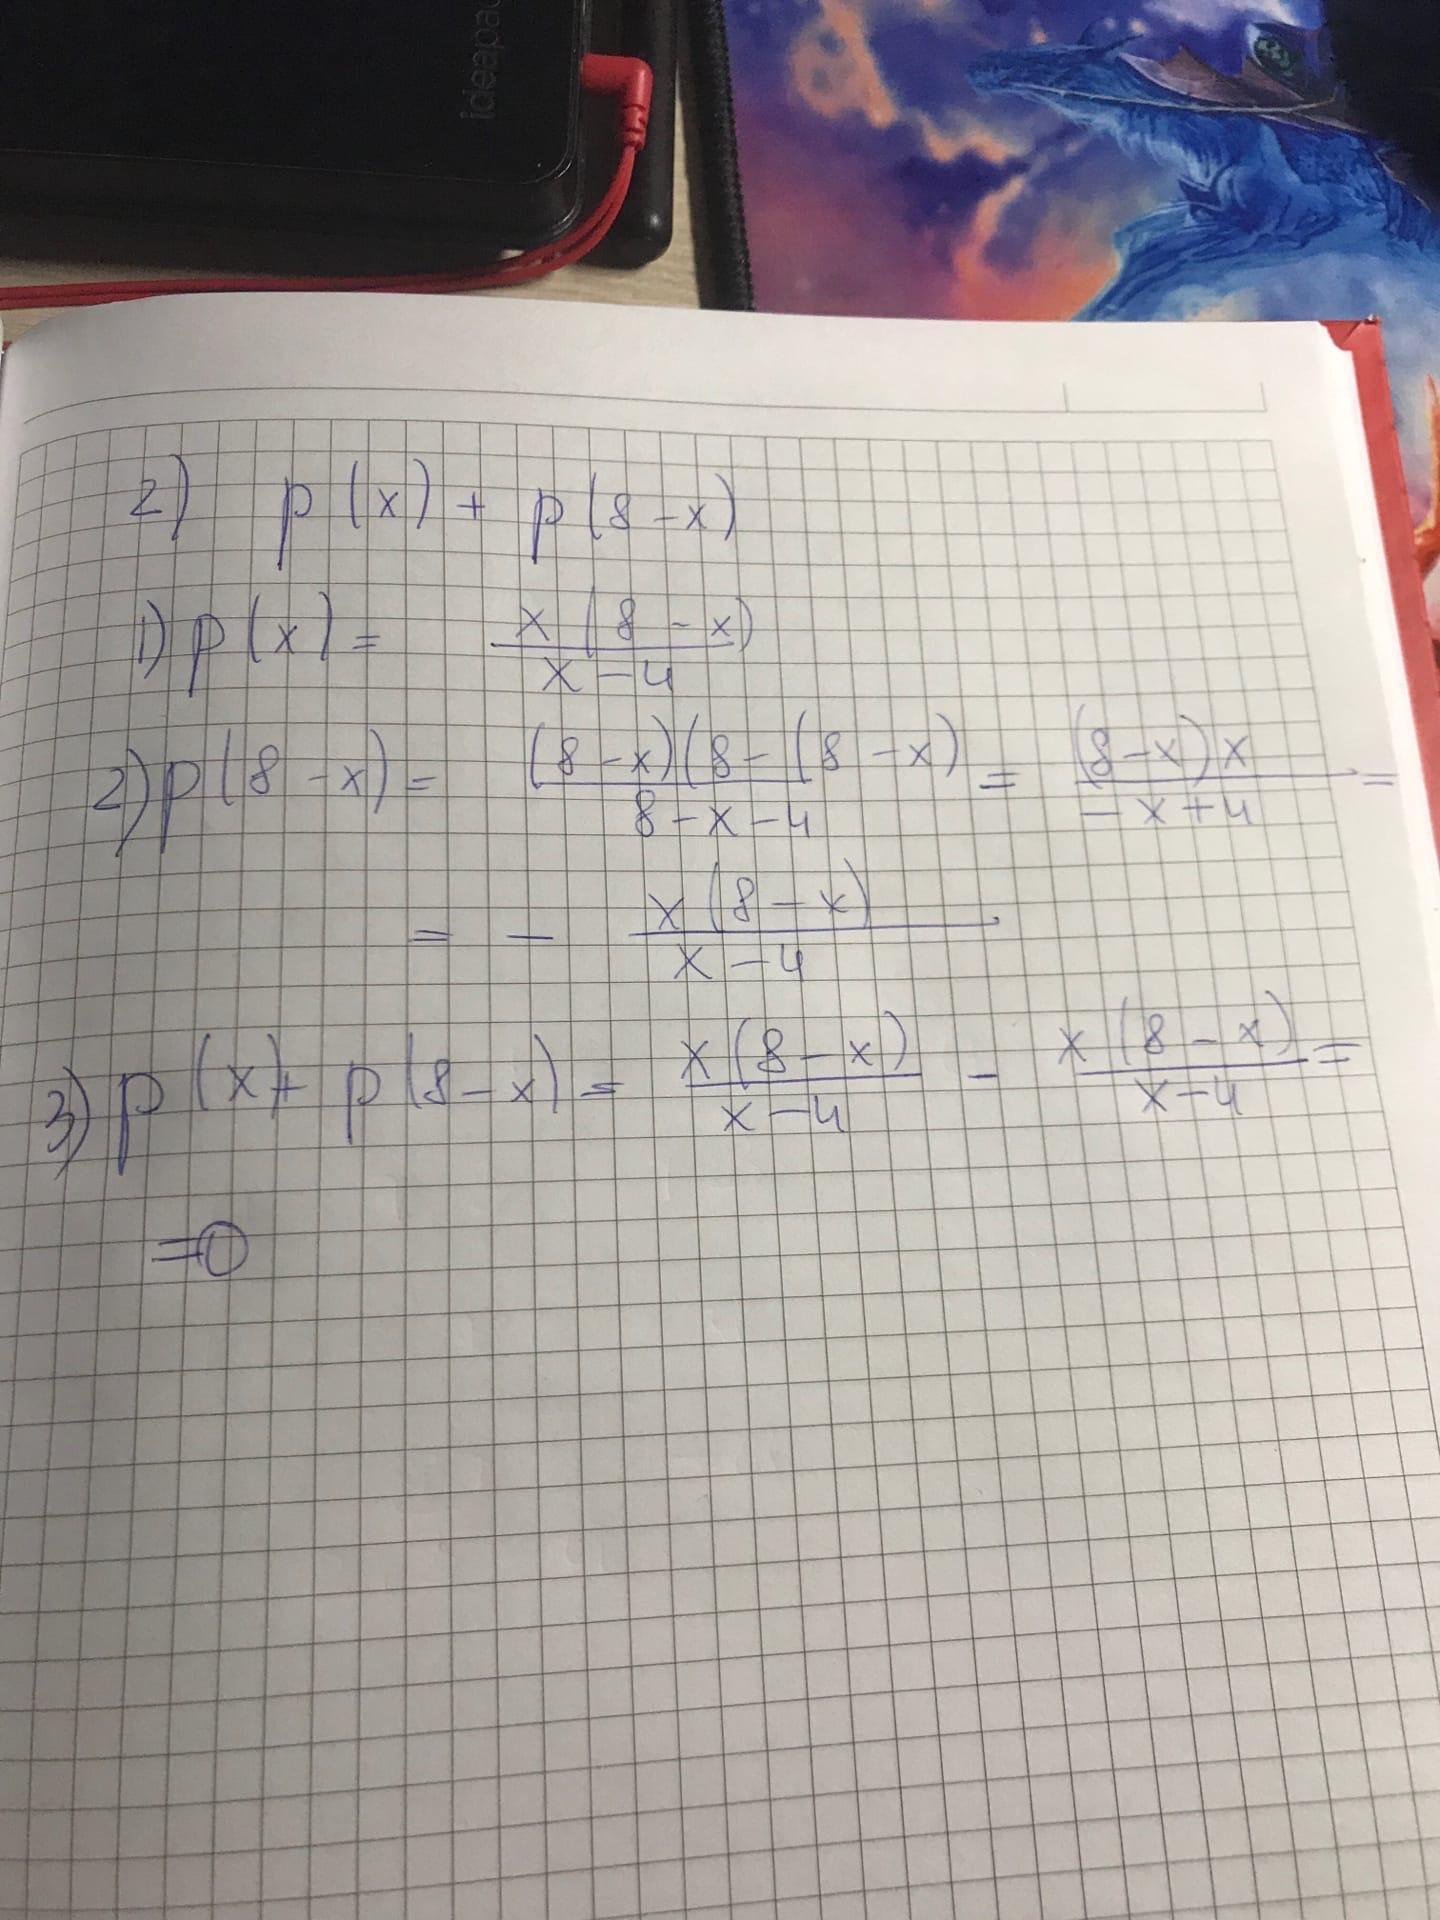 ideapad
2) p(x) + p(8-x)
1) p(x) = x(8-x)/x-4
2) p(8-x) = (8-x)(8-(8-x)/8-x-4 = (8-x)x/-x+4 =
= - x(8-x)/x-4
3) p(x)+ p(8-x) = x(8-x)/x-4 - x(8-x)/x-4 =
=0